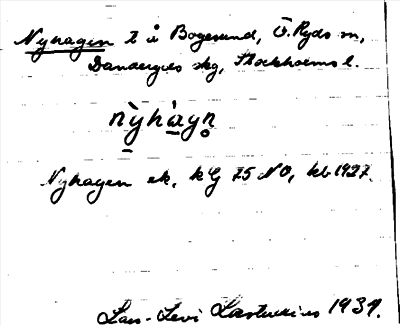 Nyhagen t å Bogesund, Ö. Ryds sn,
Danderyds skg, Stockholms l.
nỳhàgn̥
Nyhagen ek. kG 75 NO, hbl 1927.
Lars-Levi Læstadius 1937.